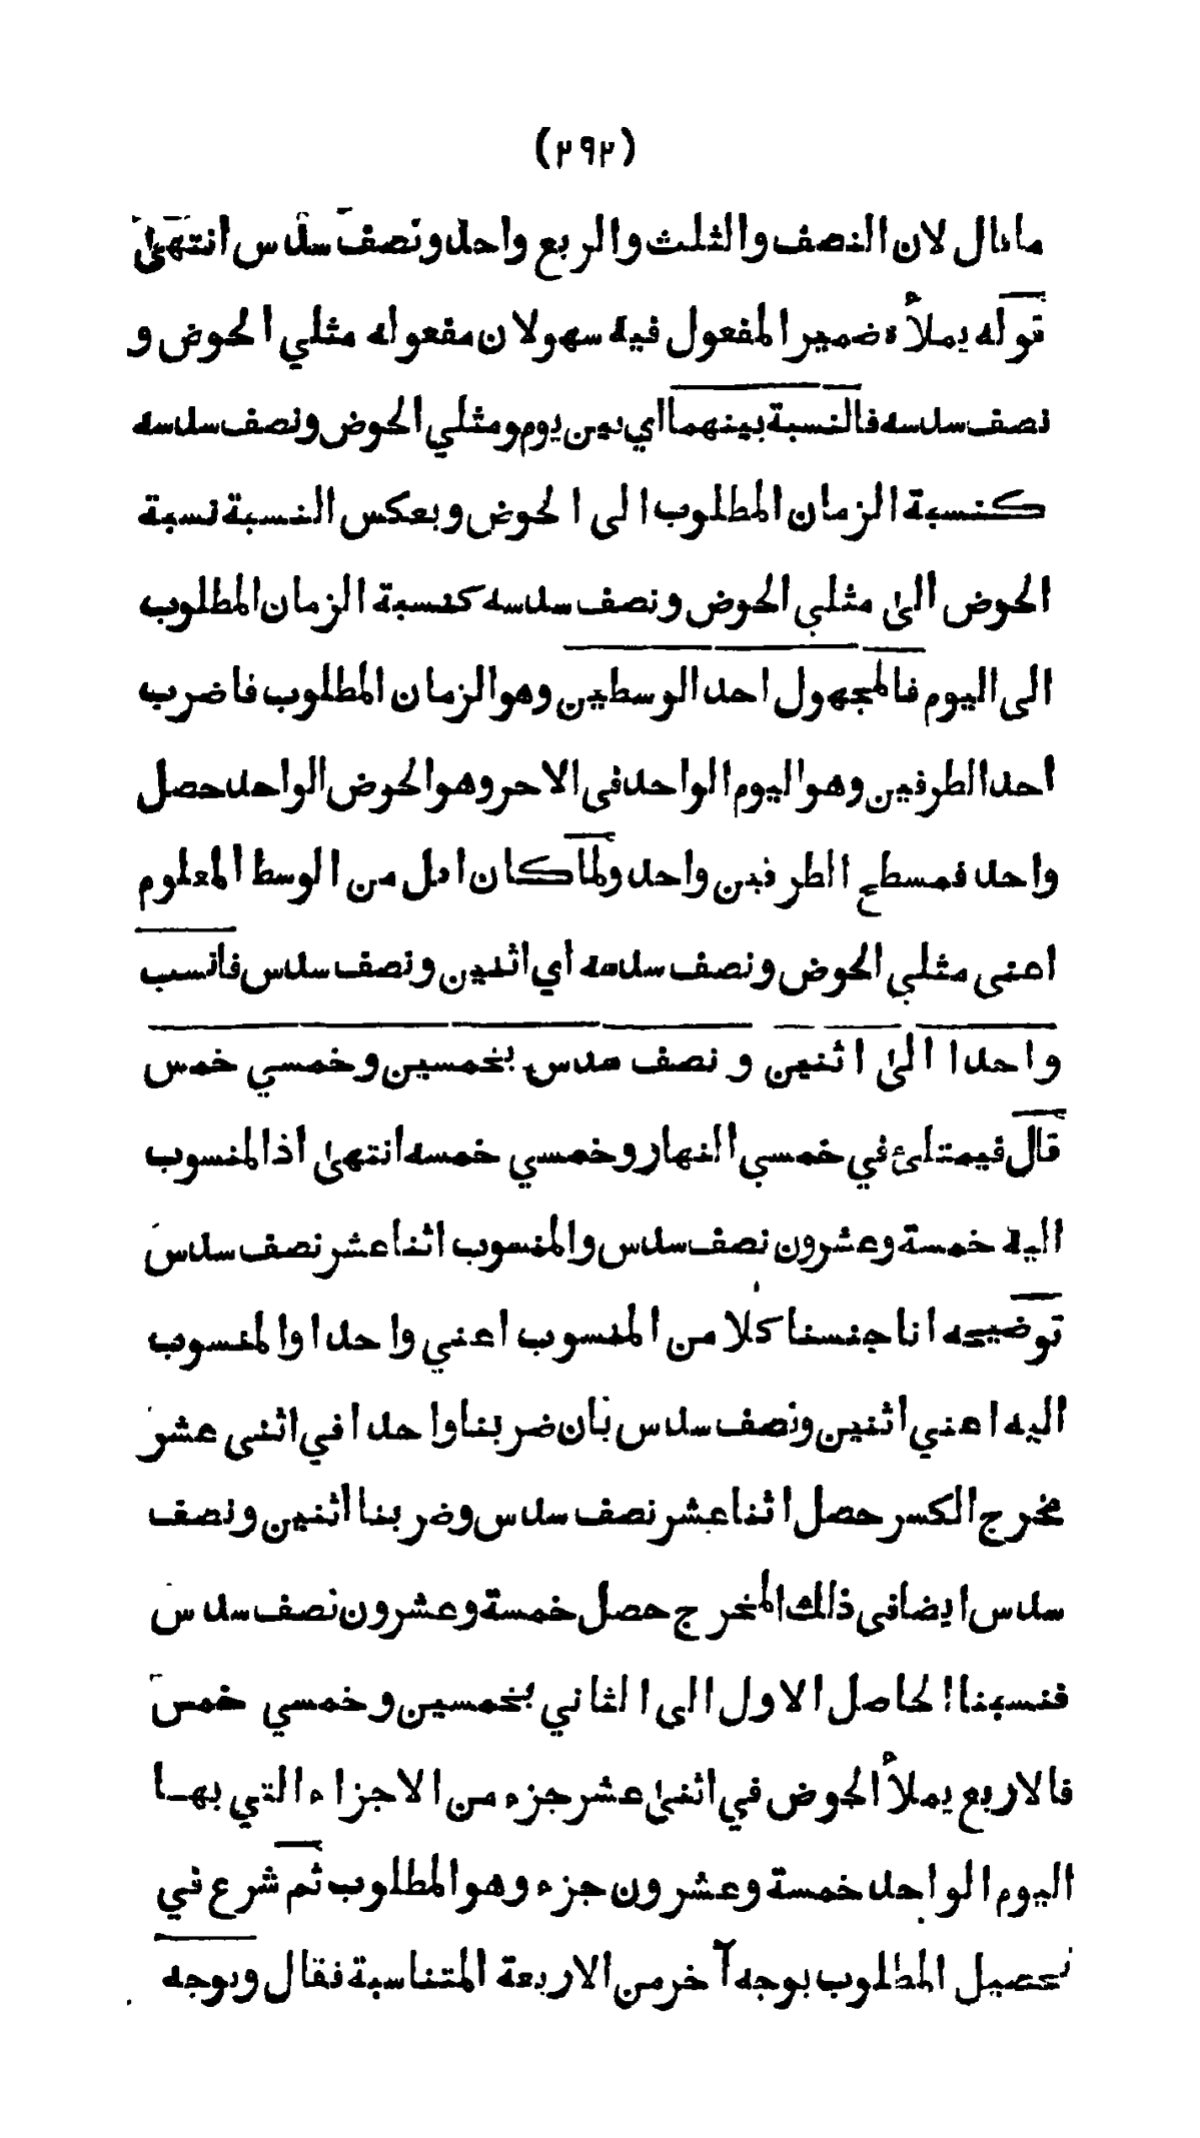 (٢٩٢)
ما قال لان النصف والثلث والربع واحد ونصف سدس انتهى
قوله يملأه ضمير المفعول فيه سهو لان مفعوله مثلي الحوض و
نصف سدسه فالنسبة بينهما اي بين يوم ومثلي الحوض ونصف سدسه
كنسبة الزمان المطلوب الى الحوض وبعكس النسبة نسبة
الحوض الى مثلي الحوض ونصف سدسه كنسبة الزمان المطلوب
الى اليوم فالمجهول احد الوسطين وهو الزمان المطلوب فاضرب
احد الطرفين وهو اليوم الواحد في الاخر وهو الحوض الواحد حصل
واحد فمسطح الطرفين واحد ولما كان اقل من الوسط المعلوم
اعنى مثلي الحوض ونصف سدسه اي اثنين ونصف سدس فانسب
واحدا الى اثنين و نصف سدس بخمسين وخمسي خمس
قال فيمتلئ في خمسي النهار وخمسي خمسه انتهى اذ المنسوب
اليه خمسة وعشرون نصف سدس والمنسوب اثنا عشر نصف سدس
توضيحه انا جنسنا كلا من المنسوب اعني واحدا والمنسوب
اليه اعني اثنين ونصف سدس بان ضربنا واحدا في اثنى عشر
مخرج الكسر حصل اثنا عشر نصف سدس وضربنا اثنين ونصف
سدس ايضا في ذلك المخرج حصل خمسة وعشرون نصف سدس
فنسبنا الحاصل الاول الى الثاني بخمسين وخمسي خمس
فالاربع يملأ الحوض في اثنى عشر جزء من الاجزاء التي بها
اليوم الواحد خمسة وعشرون جزء وهو المطلوب ثم شرع في
تحصيل المطلوب بوجه آخر من الاربعة المتناسبة فقال وبوجه